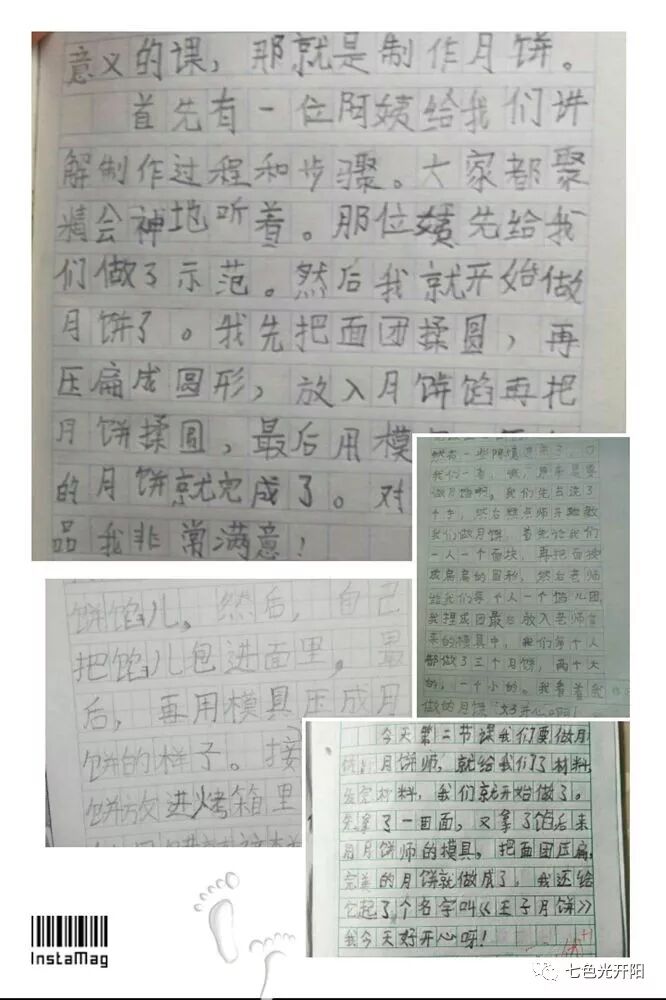 意义的课，那就是制作月饼。
首先有一位阿姨给我们讲
解制作过程和步骤。大家都聚
精会神地听着。那位姨先给我
们做了示范。然后我就开始做
月饼了。我先把面团揉圆，再
压扁成圆形，放入月饼馅再把
月饼揉圆，最后用模
的月饼就完成了。对
品我非常满意！
我们一看，原来是要
做月饼啊。我们先点洗了
个手，然后糕点师开始教
我们做月饼，首先给我们
一人一个面块，再把面按
成扁扁的圆形，然后老师
给我们每个人一个馅儿团，
我捏成团最后放入老师拿
来的模具中，我们每个人
都做了三个月饼，两个大
的，一个小的。我看着我
做的月饼 好开心啊！
饼馅儿。然后，自己
把馅儿包进面里。最
后，再用模具压成月
饼的样子。接
饼放进烤箱里
今天第二节课我们要做月
月饼师，就给我们了材料，
材料，我们就开始做了。
先拿了一团面，又拿了馅后来
用月饼师的模具，把面团压扁，
完美的月饼就做成了，我还给
它起了个名字叫《王子月饼》
我今天好开心呀！
InstaMag
七色光开阳